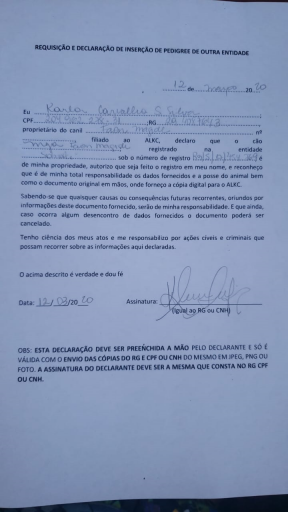 REQUISIÇÃO E DECLARAÇÃO DE INSERÇÃO DE PEDIGREE DE OUTRA ENTIDADE
12 de março 20 20
Eu Karla Carvalho S. Silva
CPF RG
proprietário do canil nº
filiado ao ALKC, declaro que o cão
registrado na entidade
sob o número de registro e
de minha propriedade, autorizo que seja feito o registro em meu nome, e reconheço
que é de minha total responsabilidade os dados fornecidos e a posse do animal bem
como o documento original em mãos, onde forneço a cópia digital para o ALKC.
Sabendo-se que quaisquer causas ou consequências futuras recorrentes, oriundos por
informações deste documento fornecido, serão de minha responsabilidade. E que ainda,
caso ocorra algum desencontro de dados fornecidos o documento poderá ser
cancelado.
Tenho ciência dos meus atos e me responsabilizo por ações cíveis e criminais que
possam recorrer sobre as informações aqui declaradas.
O acima descrito é verdade e dou fé
Data: 12/03/20 20 Assinatura:
(igual ao RG ou CNH)
OBS: ESTA DECLARAÇÃO DEVE SER PREENCHIDA A MÃO PELO DECLARANTE E SÓ É
VÁLIDA COM O ENVIO DAS CÓPIAS DO RG E CPF OU CNH DO MESMO EM JPEG, PNG OU
FOTO. A ASSINATURA DO DECLARANTE DEVE SER A MESMA QUE CONSTA NO RG CPF
OU CNH.